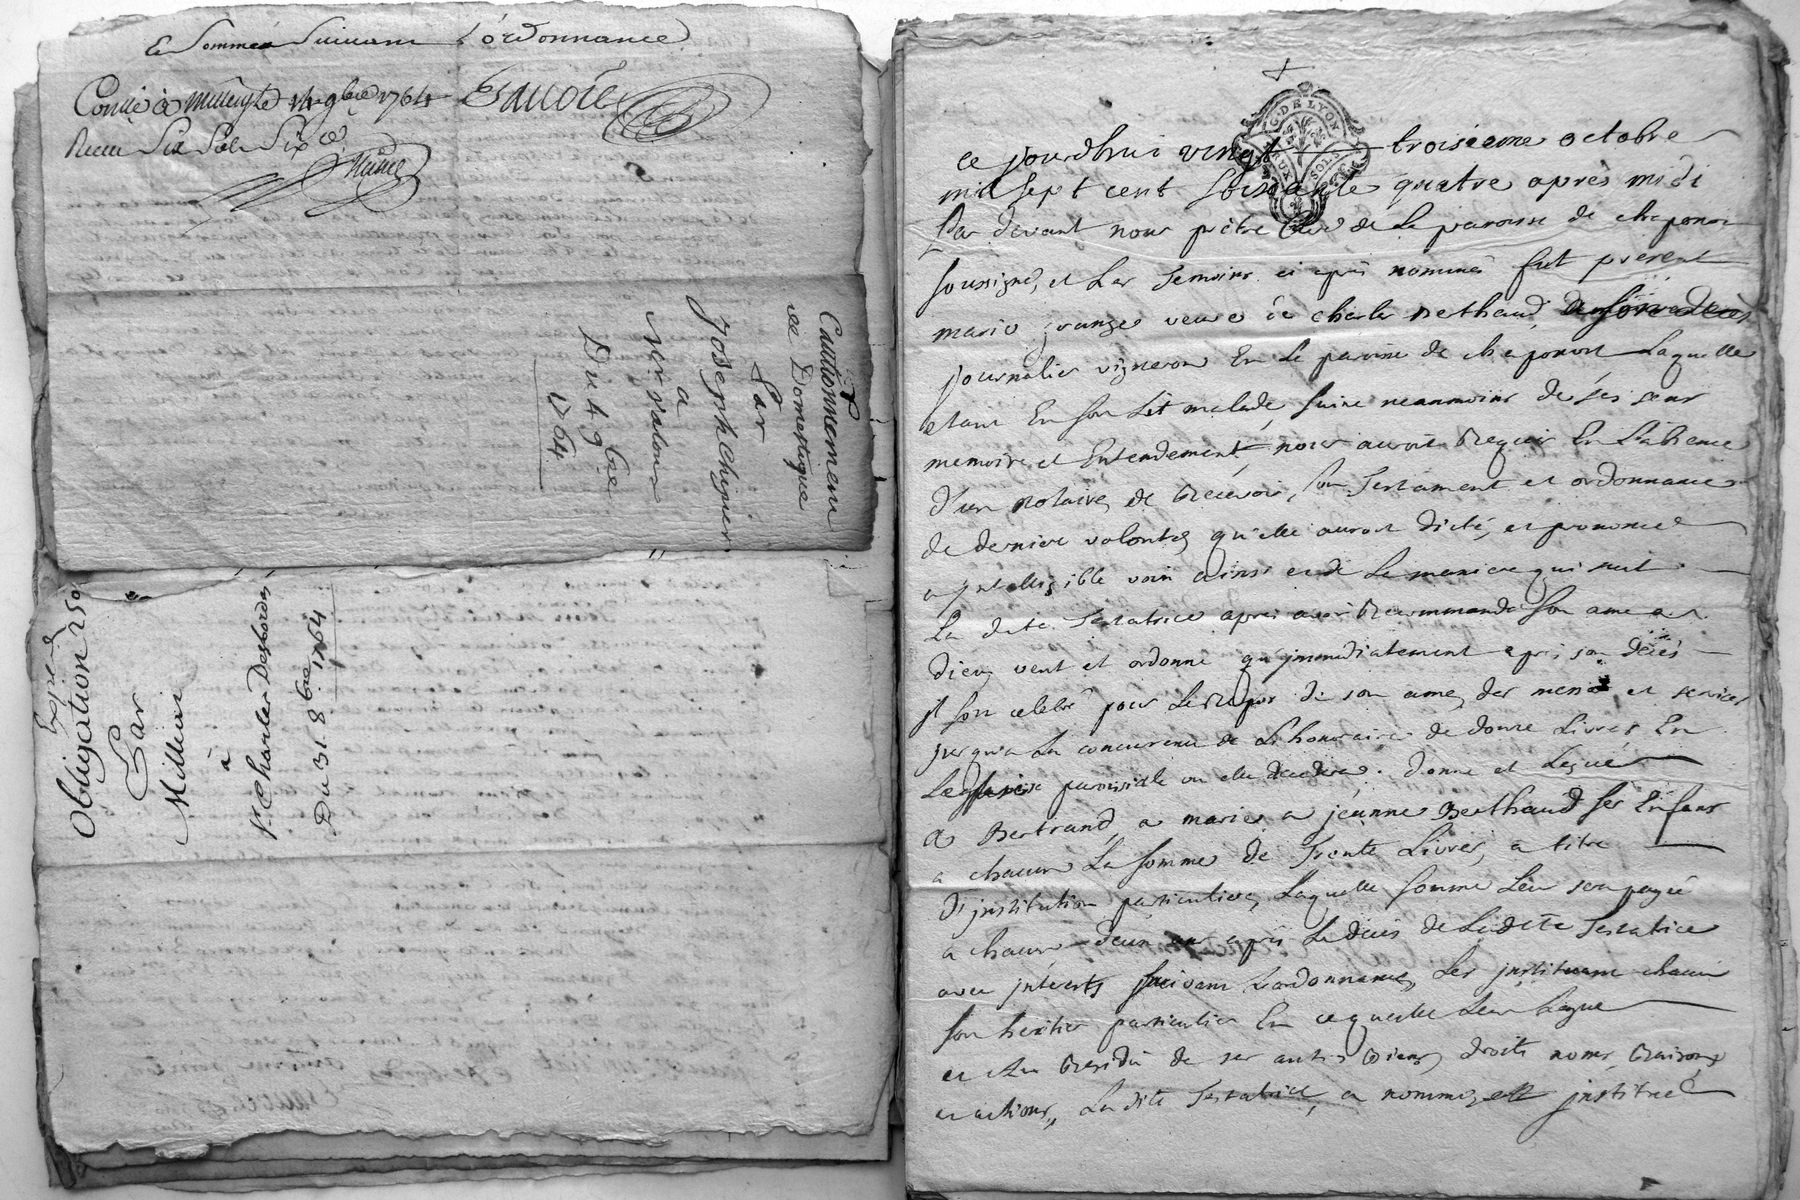 et sommée suivant l'ordonnance
Conlé a Millery le 14 9bre 1764
Receu Six Sols Six d.
Cautionnement
de Domestique
Par
Joseph Chipier
a
Du 4 9bre
1764
Expied
Obligation 250
Par
Million
à
Sr. Charles Desbordes
Du 31. 8bre 1764
G. DE LYON
DEUX SOLS
ce jourdhui vingt troisieme octobre
mil sept cent soixante quatre après midi
Par devant nous prêtre Curé de La paroisse de chaponost
soussigné, et Les Temoins ci après nommés fut present
marie grange veuve de charles Berthaud
journalier vigneron En La paroisse de chaponost Laquelle
etant En son Lit malade, saine neanmoins de ses sens
memoire et Entendement, nous auroit Requis En L'absence
d'un notaire, de Recevoir son Testament et ordonnance
de derniere volonté, qu'elle auroit dicté, et prononcé
a jntelligible voix ainsi et de La maniere qui suit
La dite Testatrice après avoir Recommandé son ame a
dieu, veut et ordonne qu'jmmediatement après son décès
jl soit celebré pour Le Repos de son ame, des messes et services
jusqu'a La concurence de L'honoraire de douze Livres En
L'eglise paroissiale ou elle decedera. donne et Legue
a Bertrand, a marie, a jeanne Berthaud ses Enfans
a chacun La somme de Trente Livres, a titre
d'jnstitution particuliere, Laquelle somme Leur sera payée
a chacun deux ans après Le décès de Ladite Testatrice
avec jnterets suivant L'ordonnance, Les jnstituant chacun
son heritier particulier En ce qu'elle Leur Legue
et Au Residu de ses autres Biens, droits noms, Raisons,
et actions, Ladite Testatrice, a nommé, et jnstitué